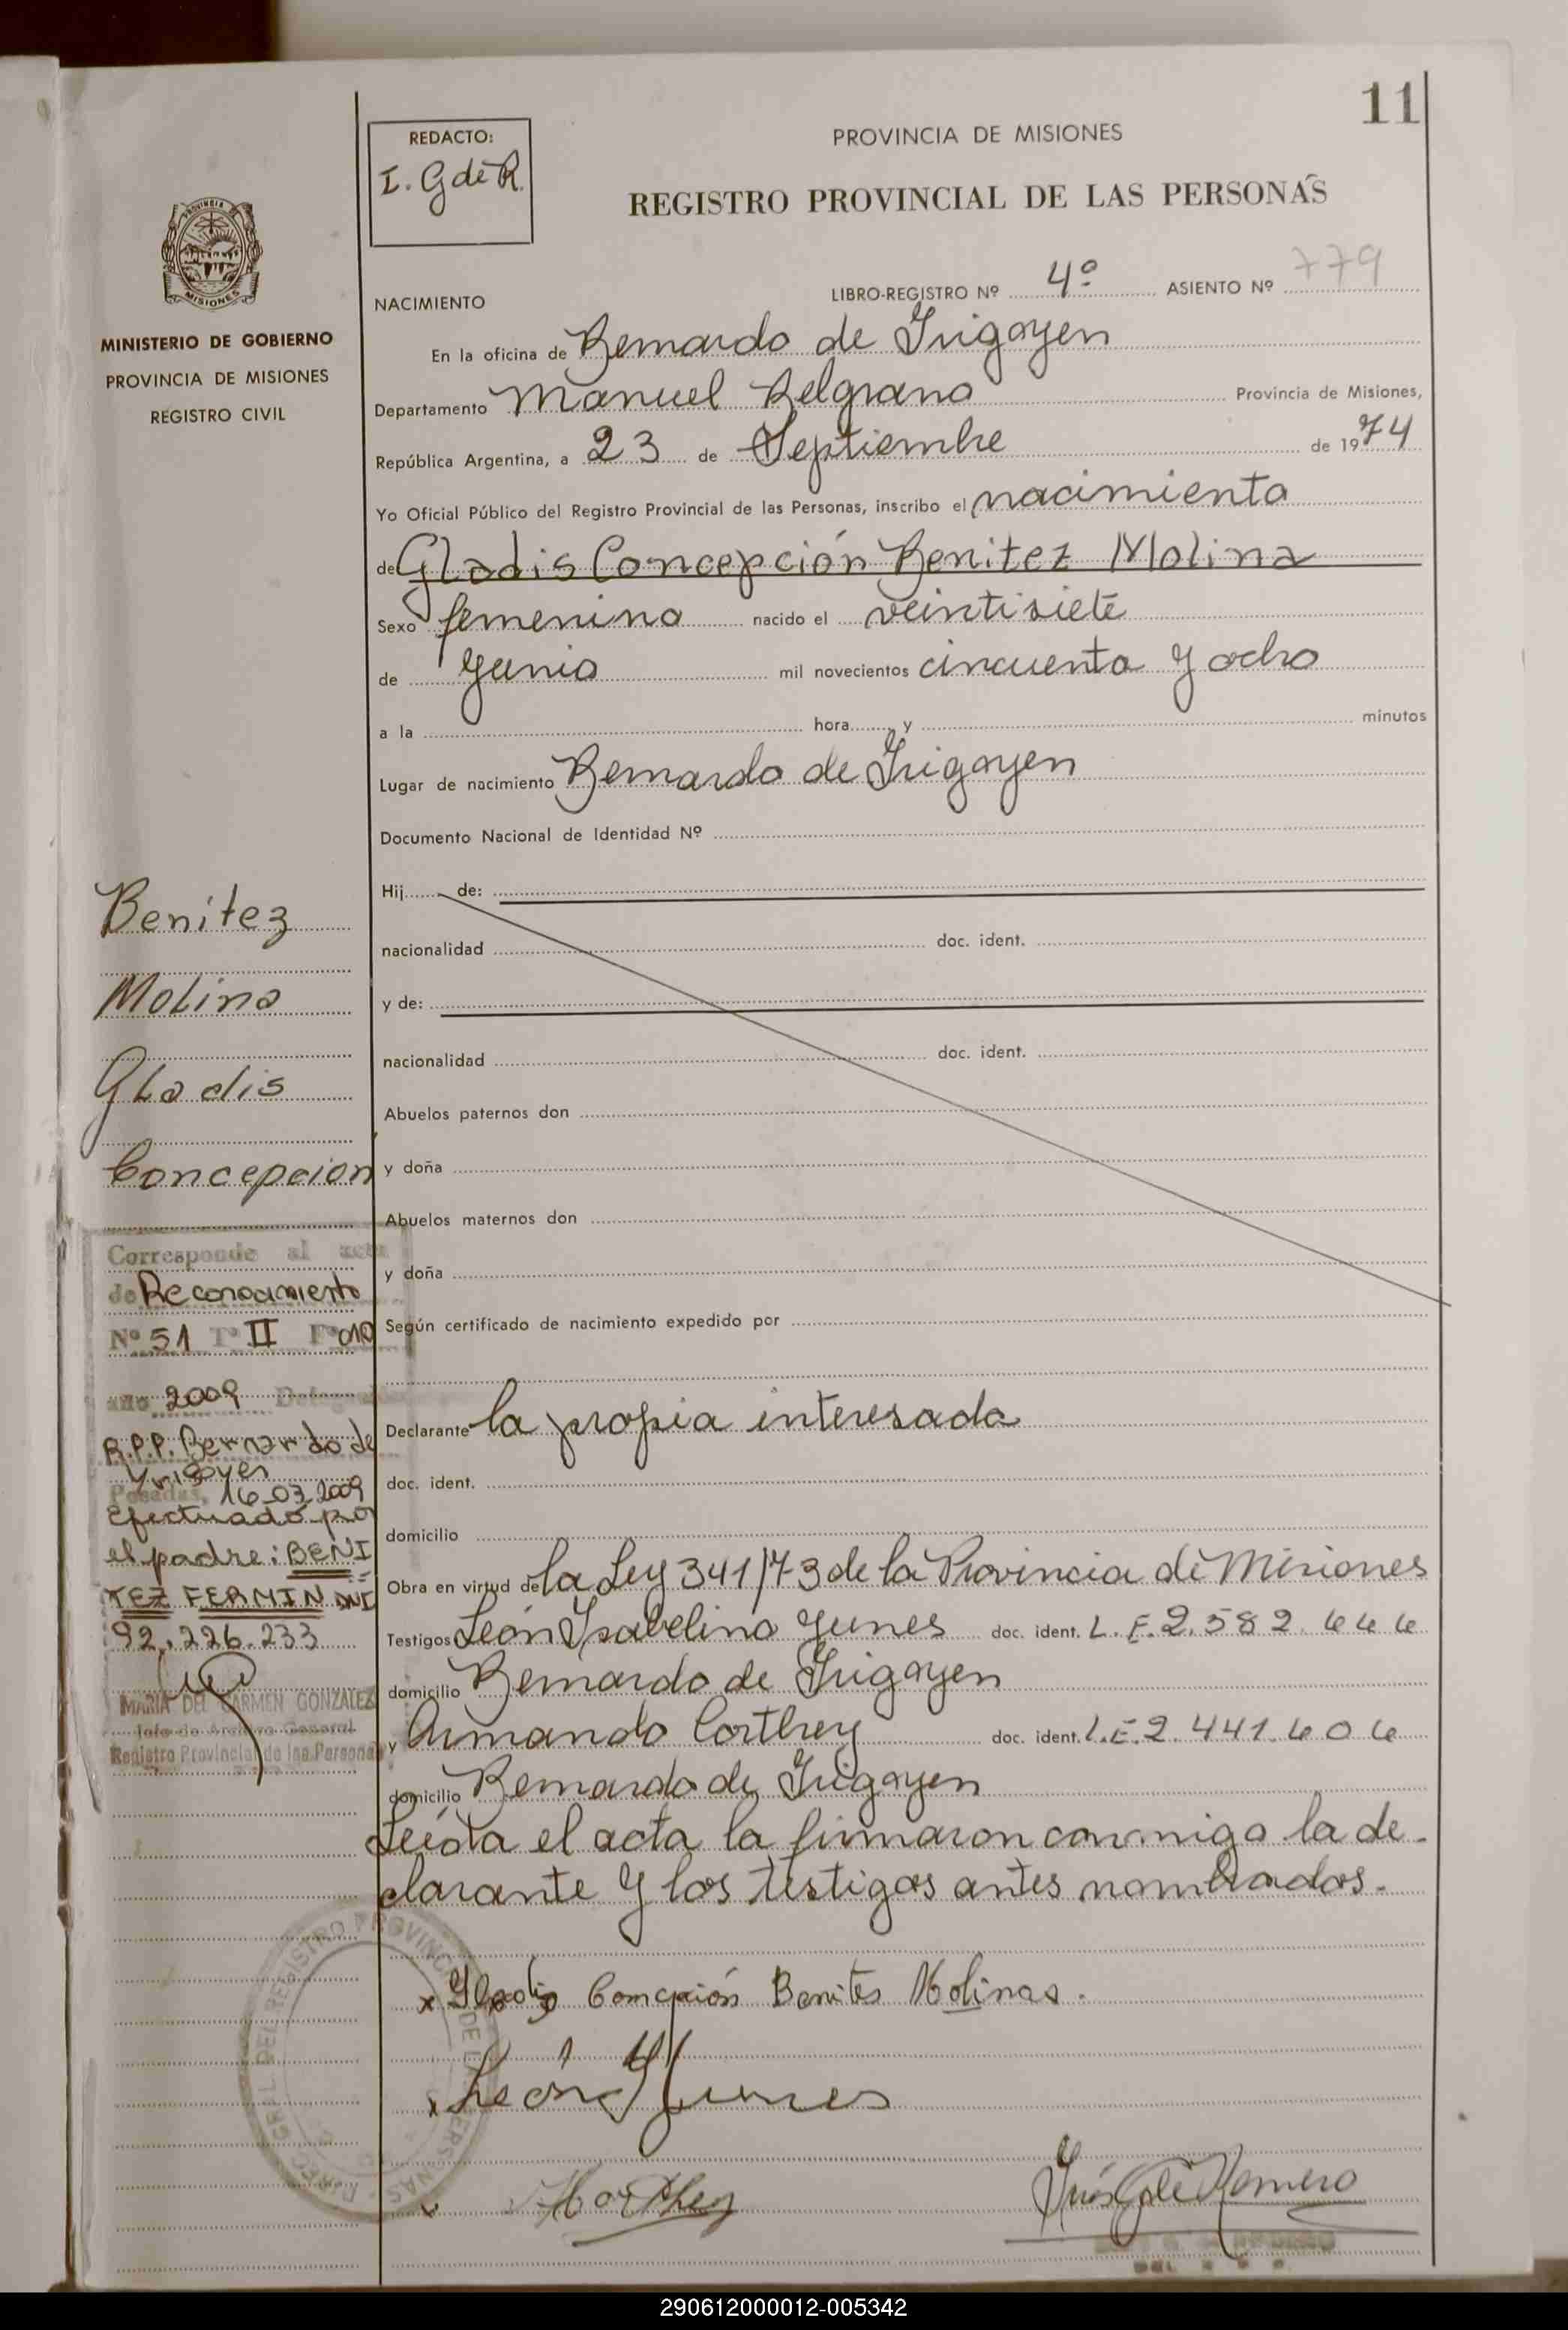 11
REDACTO:
I. G de R.
PROVINCIA DE MISIONES
REGISTRO PROVINCIAL DE LAS PERSONAS
MISIONES
MINISTERIO DE GOBIERNO
PROVINCIA DE MISIONES
REGISTRO CIVIL
NACIMIENTO LIBRO-REGISTRO Nº 4º ASIENTO Nº 779
En la oficina de Bernardo de Irigoyen
Departamento Manuel Belgrano Provincia de Misiones,
República Argentina, a 23 de Septiembre de 1974
Yo Oficial Público del Registro Provincial de las Personas, inscribo el nacimiento
de Gladis Concepción Benitez Molina
Sexo femenino nacido el veintisiete
de Junio mil novecientos cincuenta y ocho
a la hora y minutos
Lugar de nacimiento Bernardo de Irigoyen
Documento Nacional de Identidad Nº
Hij de:
nacionalidad doc. ident.
y de:
nacionalidad doc. ident.
Abuelos paternos don
y doña
Abuelos maternos don
y doña
Según certificado de nacimiento expedido por
Declarante la propia interesada
doc. ident.
domicilio
Obra en virtud de la Ley 341/73 de la Provincia de Misiones
Testigos León Isabelino Yunes doc. ident. L.E. 2.582.666
domicilio Bernardo de Irigoyen
y Armando Corthey doc. ident. L.E. 2.441.606
domicilio Bernardo de Irigoyen
Leída el acta la firmaron conmigo la de-
clarante y los testigos antes nombrados.
x Gladis Concepción Benites Molinas.
x León Yunes
Corthey
Inés G de Romero
Benitez
Molina
Gladis
Concepcion
Corresponde al acta
de Reconocimiento
Nº 51 Tº II Fº 010
año 2009
R.P.P. Bernardo de
Yrigoyen
Posadas, 16-03-2009
Efectuado por
el padre: BENI
TEZ FERMIN DNI
92.226.233
MARIA DEL CARMEN GONZALEZ
Jefe de Archivo General
Registro Provincial de las Personas
290612000012-005342